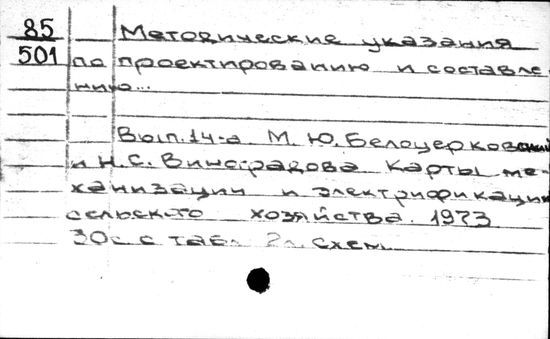 85 Методические указания
501 по проектированию и составле-
нию...
Вып.14-а М.Ю.Белоцерковский
и Н.С.Виноградова Карты ме-
ханизации и электрификации
сельского хозяйства. 1973
30с с табл 2л. схем.